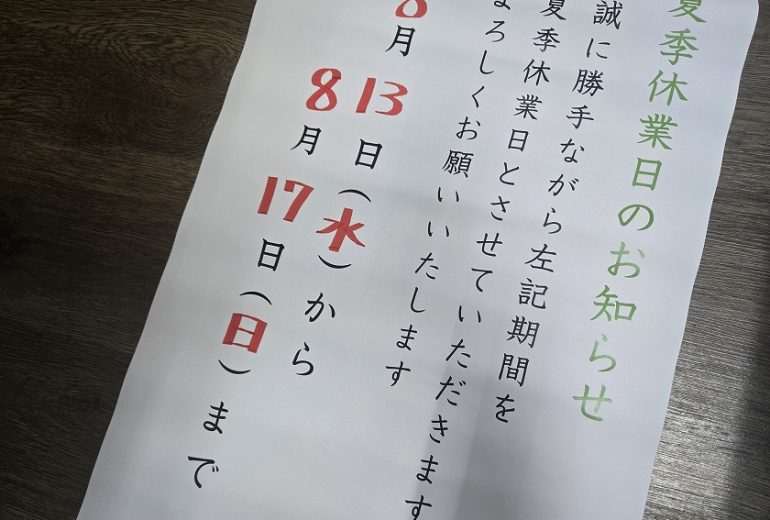 夏季休業日のお知らせ
誠に勝手ながら左記期間を
夏季休業日とさせていただきます
よろしくお願いいたします
8月13日(水)から
8月17日(日)まで